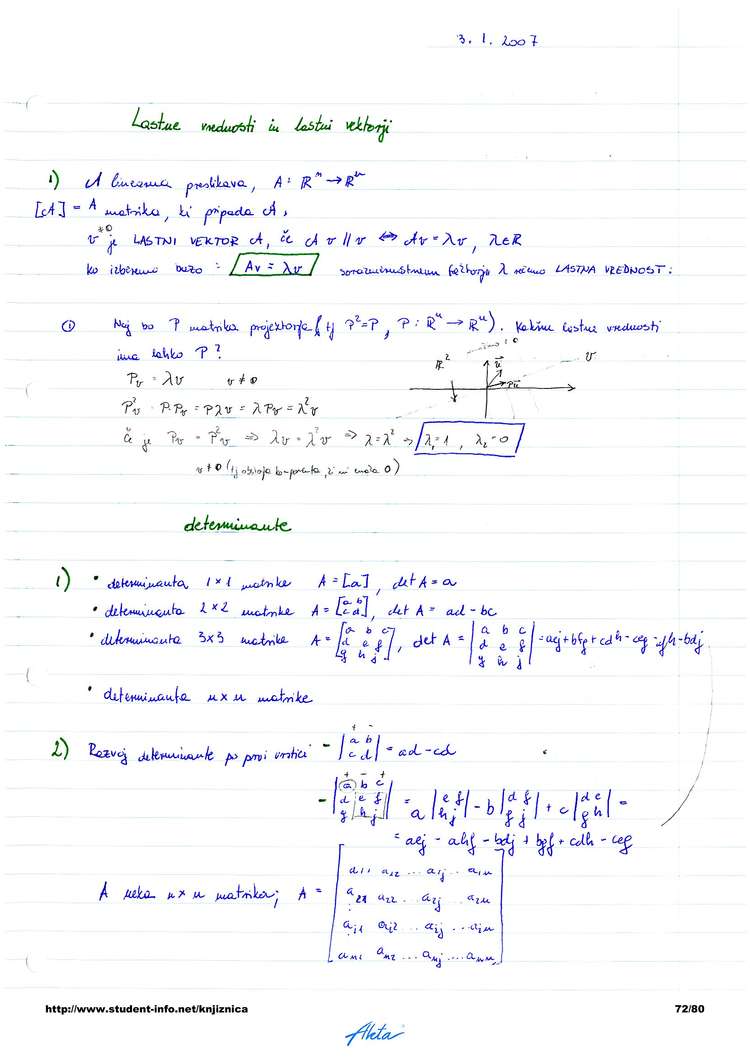 3. 1. 2007
Lastne vrednosti in lastni vektorji
1) A linearna preslikava, A: ℝⁿ → ℝⁿ
[A] = A matrika, ki pripada A,
v ≠0 je LASTNI VEKTOR A, če A v // v ⇔ Av = λv, λ∈R
ko izberemo bazo: Av = λv sorazmernostnemu faktorju λ rečemo LASTNA VREDNOST:
① Naj bo P matrika projektorja (tj P²=P, P: ℝⁿ → ℝⁿ). Kakšne lastne vrednosti
ima lahko P?
ℝ² u v Pu
Pv = λv v ≠ 0
P²v = P·Pv = Pλv = λPv = λ²v
če je Pv = P²v ⇒ λv = λ²v ⇒ λ=λ² → λ₁=1, λ₂=0
v ≠ 0 (tj obstaja komponenta, ki ni enaka 0)
determinante
1) • determinanta 1×1 matrike A = [a], det A = a
• determinanta 2×2 matrike A = [a b; c d], det A = ad - bc
• determinanta 3×3 matrike A = [a b c; d e f; g h j], det A = |a b c; d e f; g h j| = aej + bfg + cdh - ceg - afh - bdj
• determinanta n×n matrike
2) Razvoj determinante po prvi vrstici - |a b; c d| = ad - cd
- |a b c; d e f; g h j| = a |e f; h j| - b |d f; g j| + c |d e; g h| =
= aej - ahf - bdj + bgf + cdh - ceg
A neka n×n matrika; A =
a₁₁ a₁₂ ... a₁ⱼ ... a₁ₙ
a₂₁ a₂₂ ... a₂ⱼ a₂ₙ
aᵢ₁ aᵢ₂ ... aᵢⱼ ... aᵢₙ
aₙ₁ aₙ₂ ... aₙⱼ ... aₙₙ
http://www.student-info.net/knjiznica 72/80